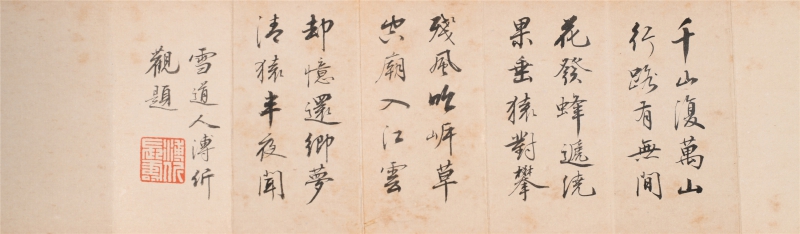 千山復萬山
行路有無間
花發蜂遞繞
果垂猿對攀
殘風吹岸草
空廟入江雲
却憶還鄉夢
清猿半夜聞
雪道人溥伒
觀題
溥伒
長壽